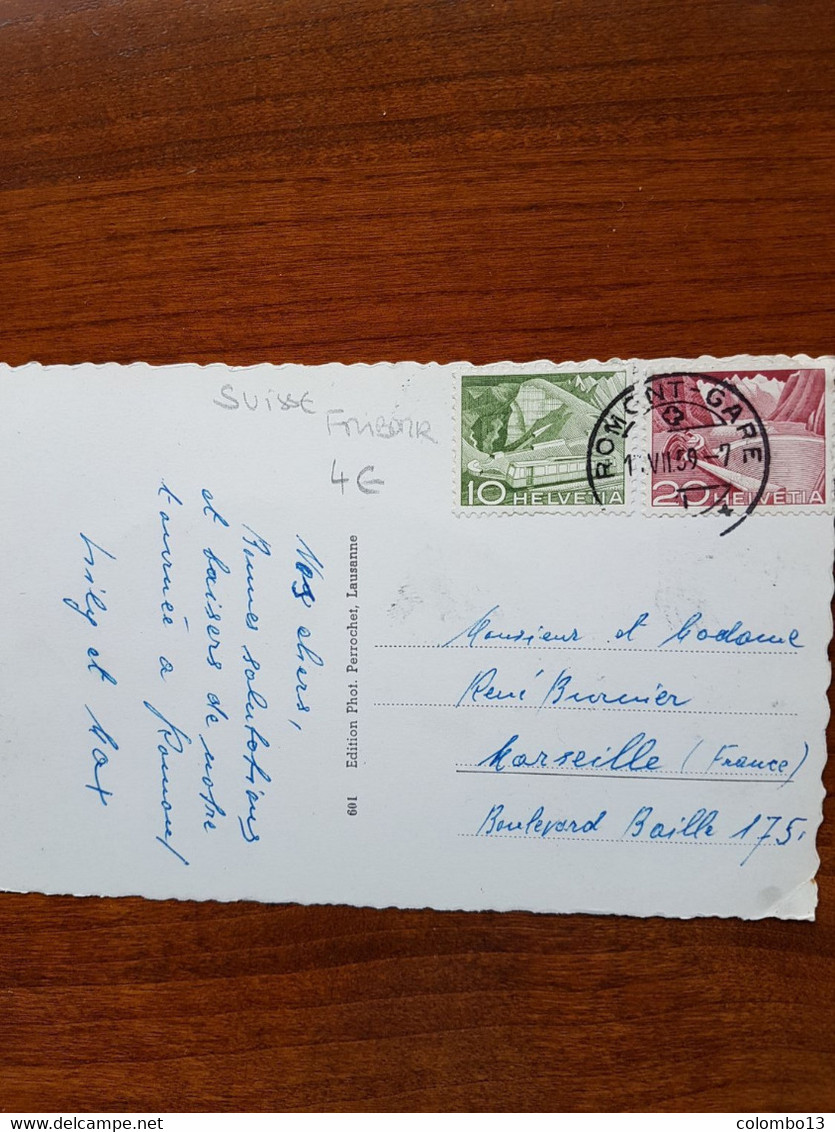 SUISSE
4€
10 HELVETIA
20 HELVETIA
ROMONT-GARE
VII.59-7
Nos chers,
Bonnes salutations
et baisers de notre
tournée à Romont
Lily et Max
601 Edition Phot. Perrochet, Lausanne
Monsieur et Madame
René Burnier
Marseille (France)
Boulevard Baille 175.
www.delcampe.net
colombo13